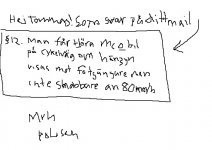 Hej Tommy! Som svar på ditt mail
§12. Man får köra moobil
på cykelväg om hänsyn
visas mot fotgängare men
inte snabbare än 80 km/h
Mvh
polisen